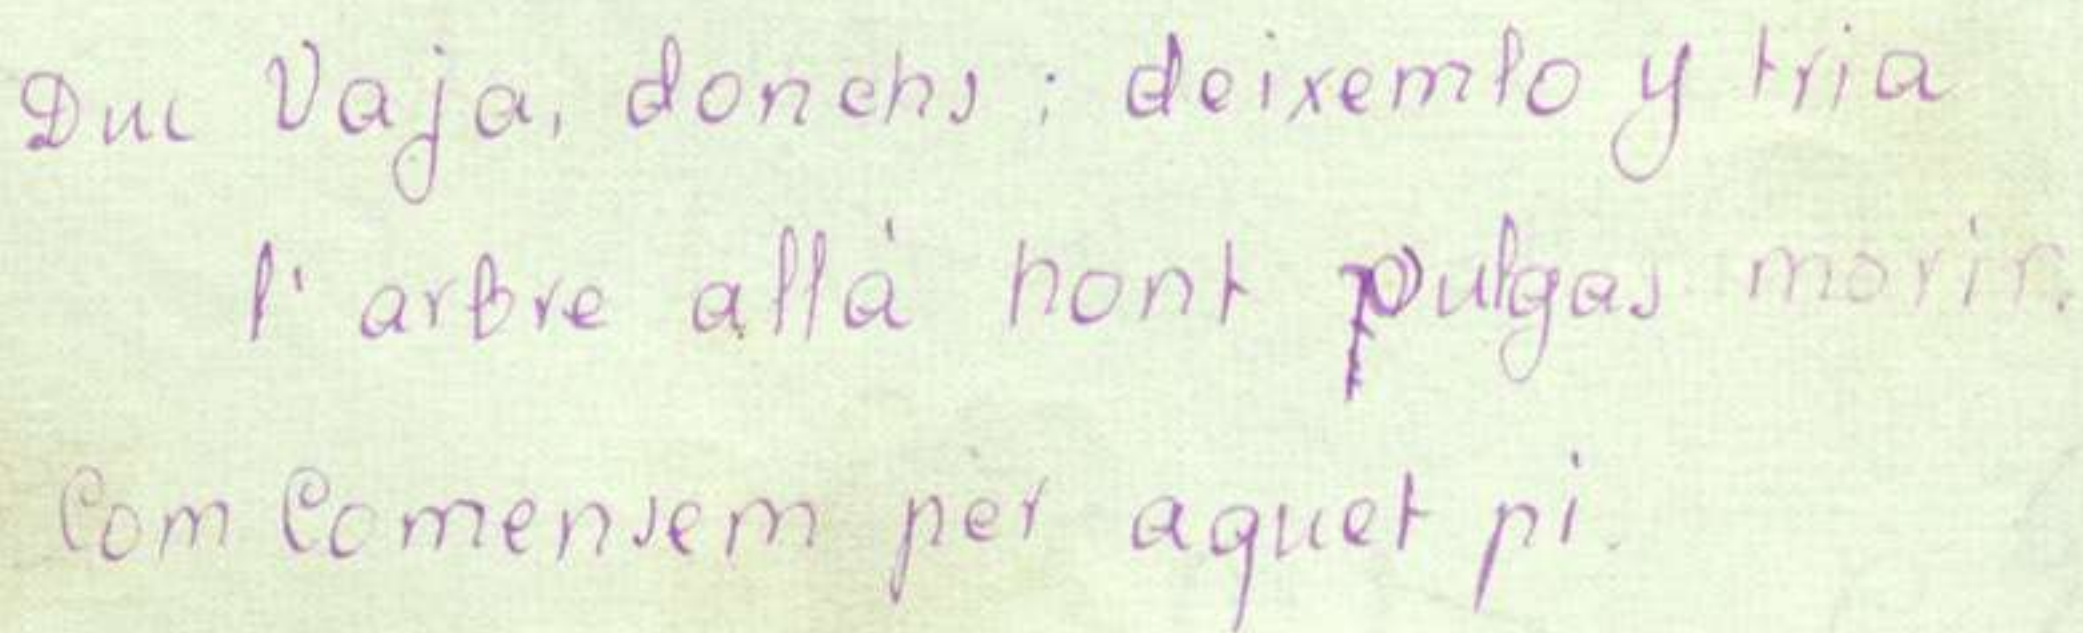 Duc Vaja, donchs; deixemlo y tria
l'arbre allá hont pulgas morir.
Com Comensem per aquet pi.